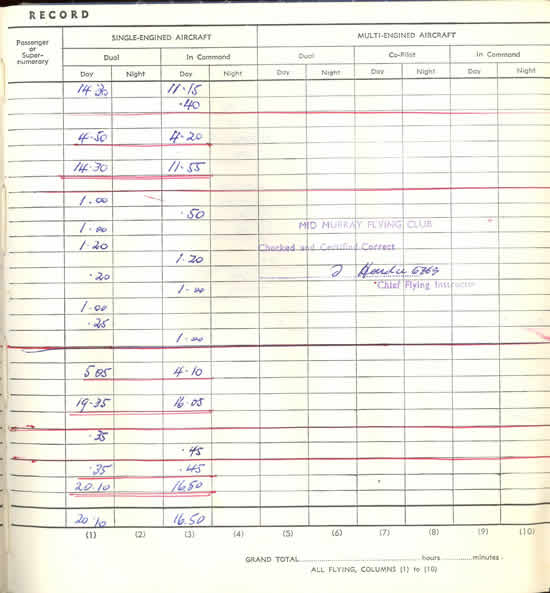 RECORD
Passenger or Super-numerary SINGLE-ENGINED AIRCRAFT MULTI-ENGINED AIRCRAFT
Dual In Command Dual Co-Pilot In Command
Day Night Day Night Day Night Day Night Day Night
14.30 11.15
.40
4.50 4.20
14.30 11.55
1.00
.50
MID MURRAY FLYING CLUB
1.00
1.20 Checked and Certified Correct
1.20
.20
1.00 Chief Flying Instructor
1.00
.25
1.00
5.05 4.10
19.35 16.05
.35
.45
.35 .45
20.10 16.50
20.10 16.50
(1) (2) (3) (4) (5) (6) (7) (8) (9) (10)
GRAND TOTAL hours minutes.
ALL FLYING, COLUMNS (1) to (10)